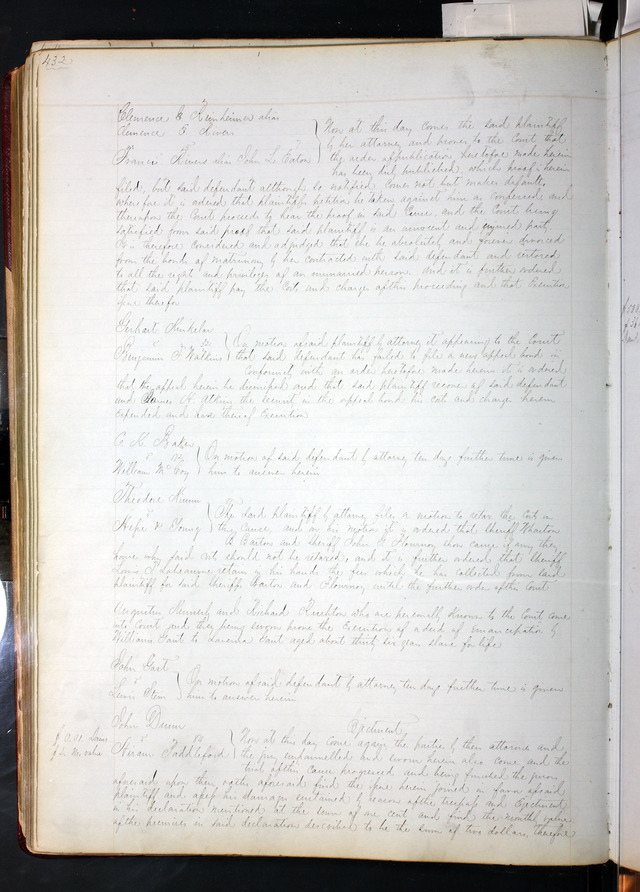 432
Clemence C Kienheimer alias
Clemence C Rivers
vs
Francis Rivers alias John L. Eaton
Now at this day comes the said plaintiff
by her attorney and proves to the Court that
the order of publication heretofore made herein
has been duly published, which proof is herein
filed, but said defendant although so notified comes not but makes default,
wherefore it is ordered that plaintiffs petition be taken against him as confessed and
thereupon the Court proceeds to hear the proof in said Cause, and the Court being
satisfied from said proof that said plaintiff is an innocent and injured party
It is therefore considered and adjudged that she be absolutely and forever divorced
from the bonds of matrimony by her contracted with said defendant and restored
to all the rights and privileges of an unmarried person and it is further ordered
that said plaintiff pay the Costs and charges of this proceeding and that Execution
issue therefor
Gerhart
vs
Benjamin F Watkins
On motion of said plaintiff by attorney it appearing to the Court
that said defendant has failed to file a new appeal bond in
Conformity with an order heretofore made herein it is ordered
that the appeal herein be dismissed and that said plaintiff recover of said defendant
and James H the security in the appeal bond his costs and charges herein
expended and have thereof Execution
C K Baker
vs
William McCoy
On motion of said defendant by attorney ten days further time is given
him to answer herein
Theodore
vs
& Young
The said plaintiff by attorney files a motion to retax the Costs in
this cause, and on his motion it is ordered that sheriff Wharton
A Barton and sheriff John show cause if any they
have why said costs should not be retaxed, and it is further ordered that Sheriff
Louis T Labeaume retain in his hands the fees which he has collected from said
plaintiff for said Sheriffs Barton and until the further order of this Court
Augustin Kennerly and Richard who are personally known to the Court come
into Court and they being sworn prove the Execution of a deed of emancipation by
William Gant to Lucinda Gant aged about thirty six years slave for life
John Hart
vs
Lewis Stein
On motion of said defendant by attorney ten days further time is given
him to answer herein
John Drum
vs
Hiram Saddleford
Ejectment
Now at this day come again the parties by their attornies and
the jury empannelled and sworn herein also come and the
trial of this cause progressed and being finished the jurors
aforesaid upon their oaths aforesaid find the issue herein joined in favor of said
plaintiff and assess his damages sustained by reason of the trespass and Ejectment
in his declaration mentioned at the sum of one cent and find the monthly value
of the premises in said declaration described to be the sum of two dollars, therefore